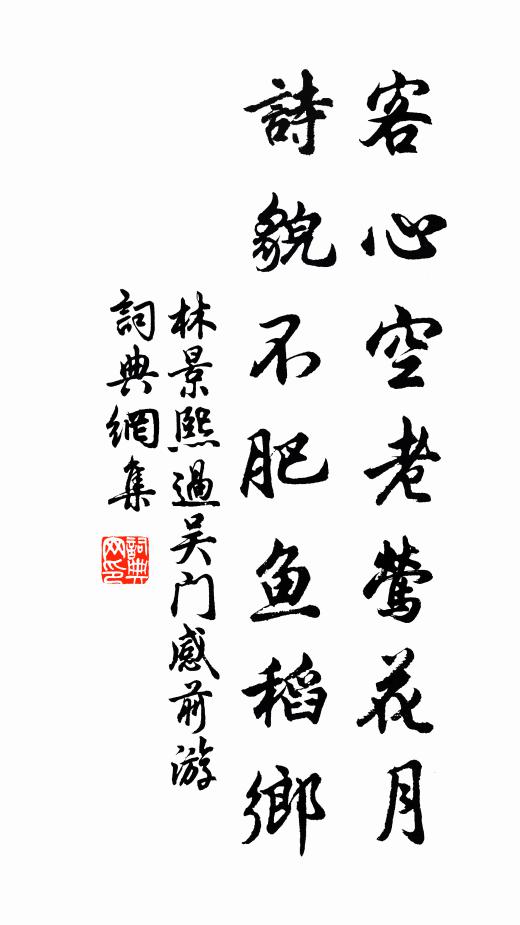 客心空老莺花月
詩貌不肥鱼稻鄉
林景熙過吴门感前游
詞典網集
詞典网印